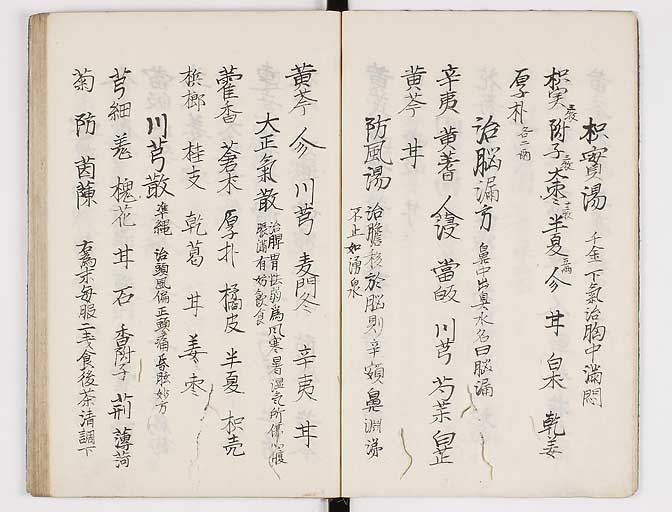 枳實湯 千金 下氣治胸中滿悶
枳実三戔 附子二戔 大棗三戔 半夏五両 㐱 甘 白朮 乾姜
厚朴各二両
治脳漏方 鼻中出臭水名曰脳漏
辛夷 黄蓍 㐱 當皈 川芎 芍薬 白芷
黄芩 甘
防風湯 治膽移於脳則辛頞鼻淵涕
不止如湧泉
黄芩 㐱 川芎 麦門冬 辛夷 甘
大正氣散 治脾胃怯弱為風寒暑湿氣所傷心腹
脹満有妨飲食
藿香 蒼朮 厚朴 橘皮 半夏 枳壳
梹榔 桂支 乾葛 甘 姜 棗
川芎散 準縄 治頭風偏正頭痛昏眩妙方
芎 細 羌 槐花 甘 石 香附子 荊 薄荷
菊 防 茵蔯 右為末毎服二戔食後茶清調下